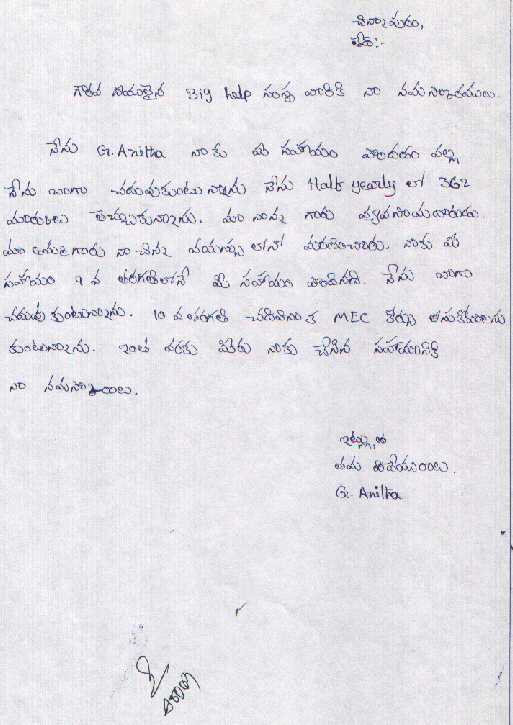 చిన్నాపురం,
తేది:-
గౌరవ నీయులైన Big help సంస్థ వారికి నా నమస్కారములు.
నేను G. Anitha నాకు ఈ సహాయం వల్ల
నేను బాగా చదువుకుంటున్నాను నేను Half yearly లో 362
మార్కులు తెచ్చుకున్నాను. మా నాన్న గారు వ్యవసాయదారుడు.
మా అమ్మగారు నా చిన్న వయస్సు లోనే మరణించారు. నాకు మీ
సహాయం 9 వ తరగతిలోనే మీ సహాయం అందినది. నేను బాగా
చదువు కుంటున్నాను. 10 వ తరగతి MEC కోర్సు
కుంటున్నాను. ఇంత వరకు మీరు నాకు చేసిన సహాయానికి
నా నమస్కారంలు.
ఇట్లు
తమ విధేయురాలు.
G. Anitha